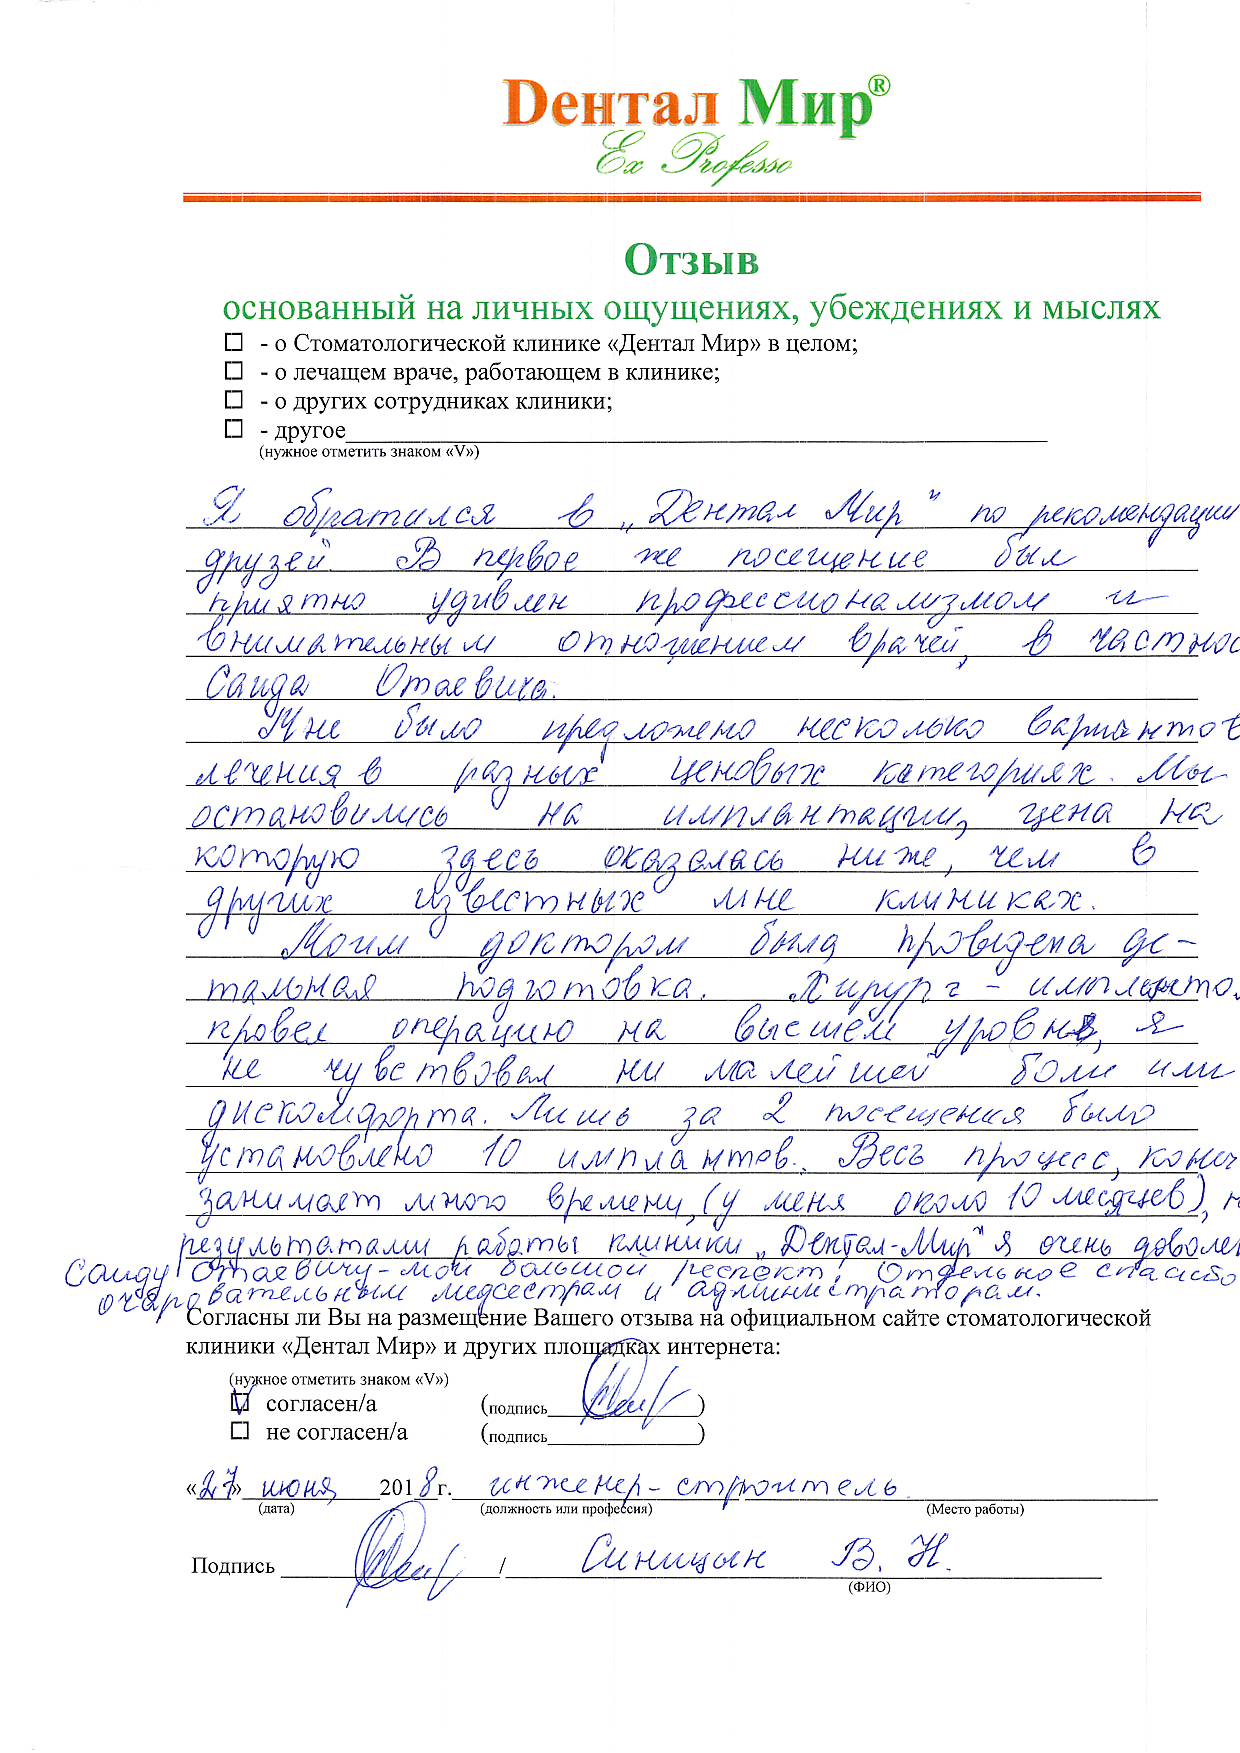 Dентал Мир®
Ex Professo
Отзыв
основанный на личных ощущениях, убеждениях и мыслях
☐ - о Стоматологической клинике «Дентал Мир» в целом;
☐ - о лечащем враче, работающем в клинике;
☐ - о других сотрудниках клиники;
☐ - другое
(нужное отметить знаком «V»)
Я обратился в „Дентал Мир" по рекомендации
друзей. В первое же посещение был
приятно удивлен профессионализмом и
внимательным отношением врачей, в частнос
Саида Отаевича.
Мне было предложено несколько вариантов
лечения в разных ценовых категориях. Мы
остановились на имплантации, цена на
которую здесь оказалась ниже, чем в
других известных мне клиниках.
Моим доктором была проведена де-
тальная подготовка. Хирург - имплантол
провел операцию на высшем уровне, я
не чувствовал ни малейшей боли или
дискомфорта. Лишь за 2 посещения было
установлено 10 имплантов. Весь процесс, конеч
занимает много времени, (у меня около 10 месяцев), н
результатами работы клиники „Дентал-Мир" я очень доволен
Саиду Отаевичу - мой большой респект! Отдельное спасибо
очаровательным медсестрам и администраторам.
Согласны ли Вы на размещение Вашего отзыва на официальном сайте стоматологической
клиники «Дентал Мир» и других площадках интернета:
(нужное отметить знаком «V»)
☑ согласен/а (подпись )
☐ не согласен/а (подпись )
«27» июня 2018г. инженер-строитель.
(дата) (должность или профессия) (Место работы)
Подпись / Синицын В. Н.
(ФИО)